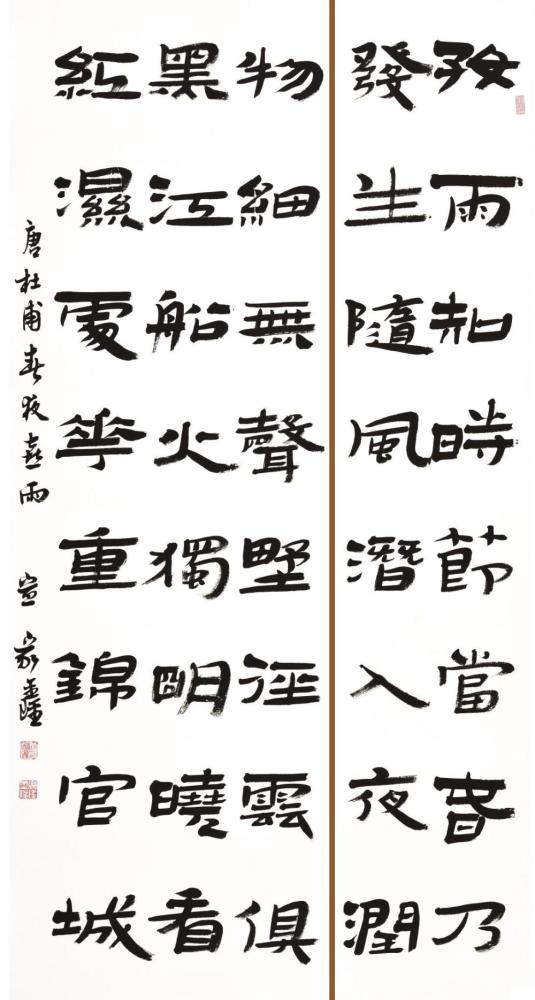 好雨知時節當春乃
發生隨風潛入夜潤
物細無聲野徑雲俱
黑江船火獨明曉看
紅濕處華重錦官城
唐杜甫春夜喜雨 宣家鑫